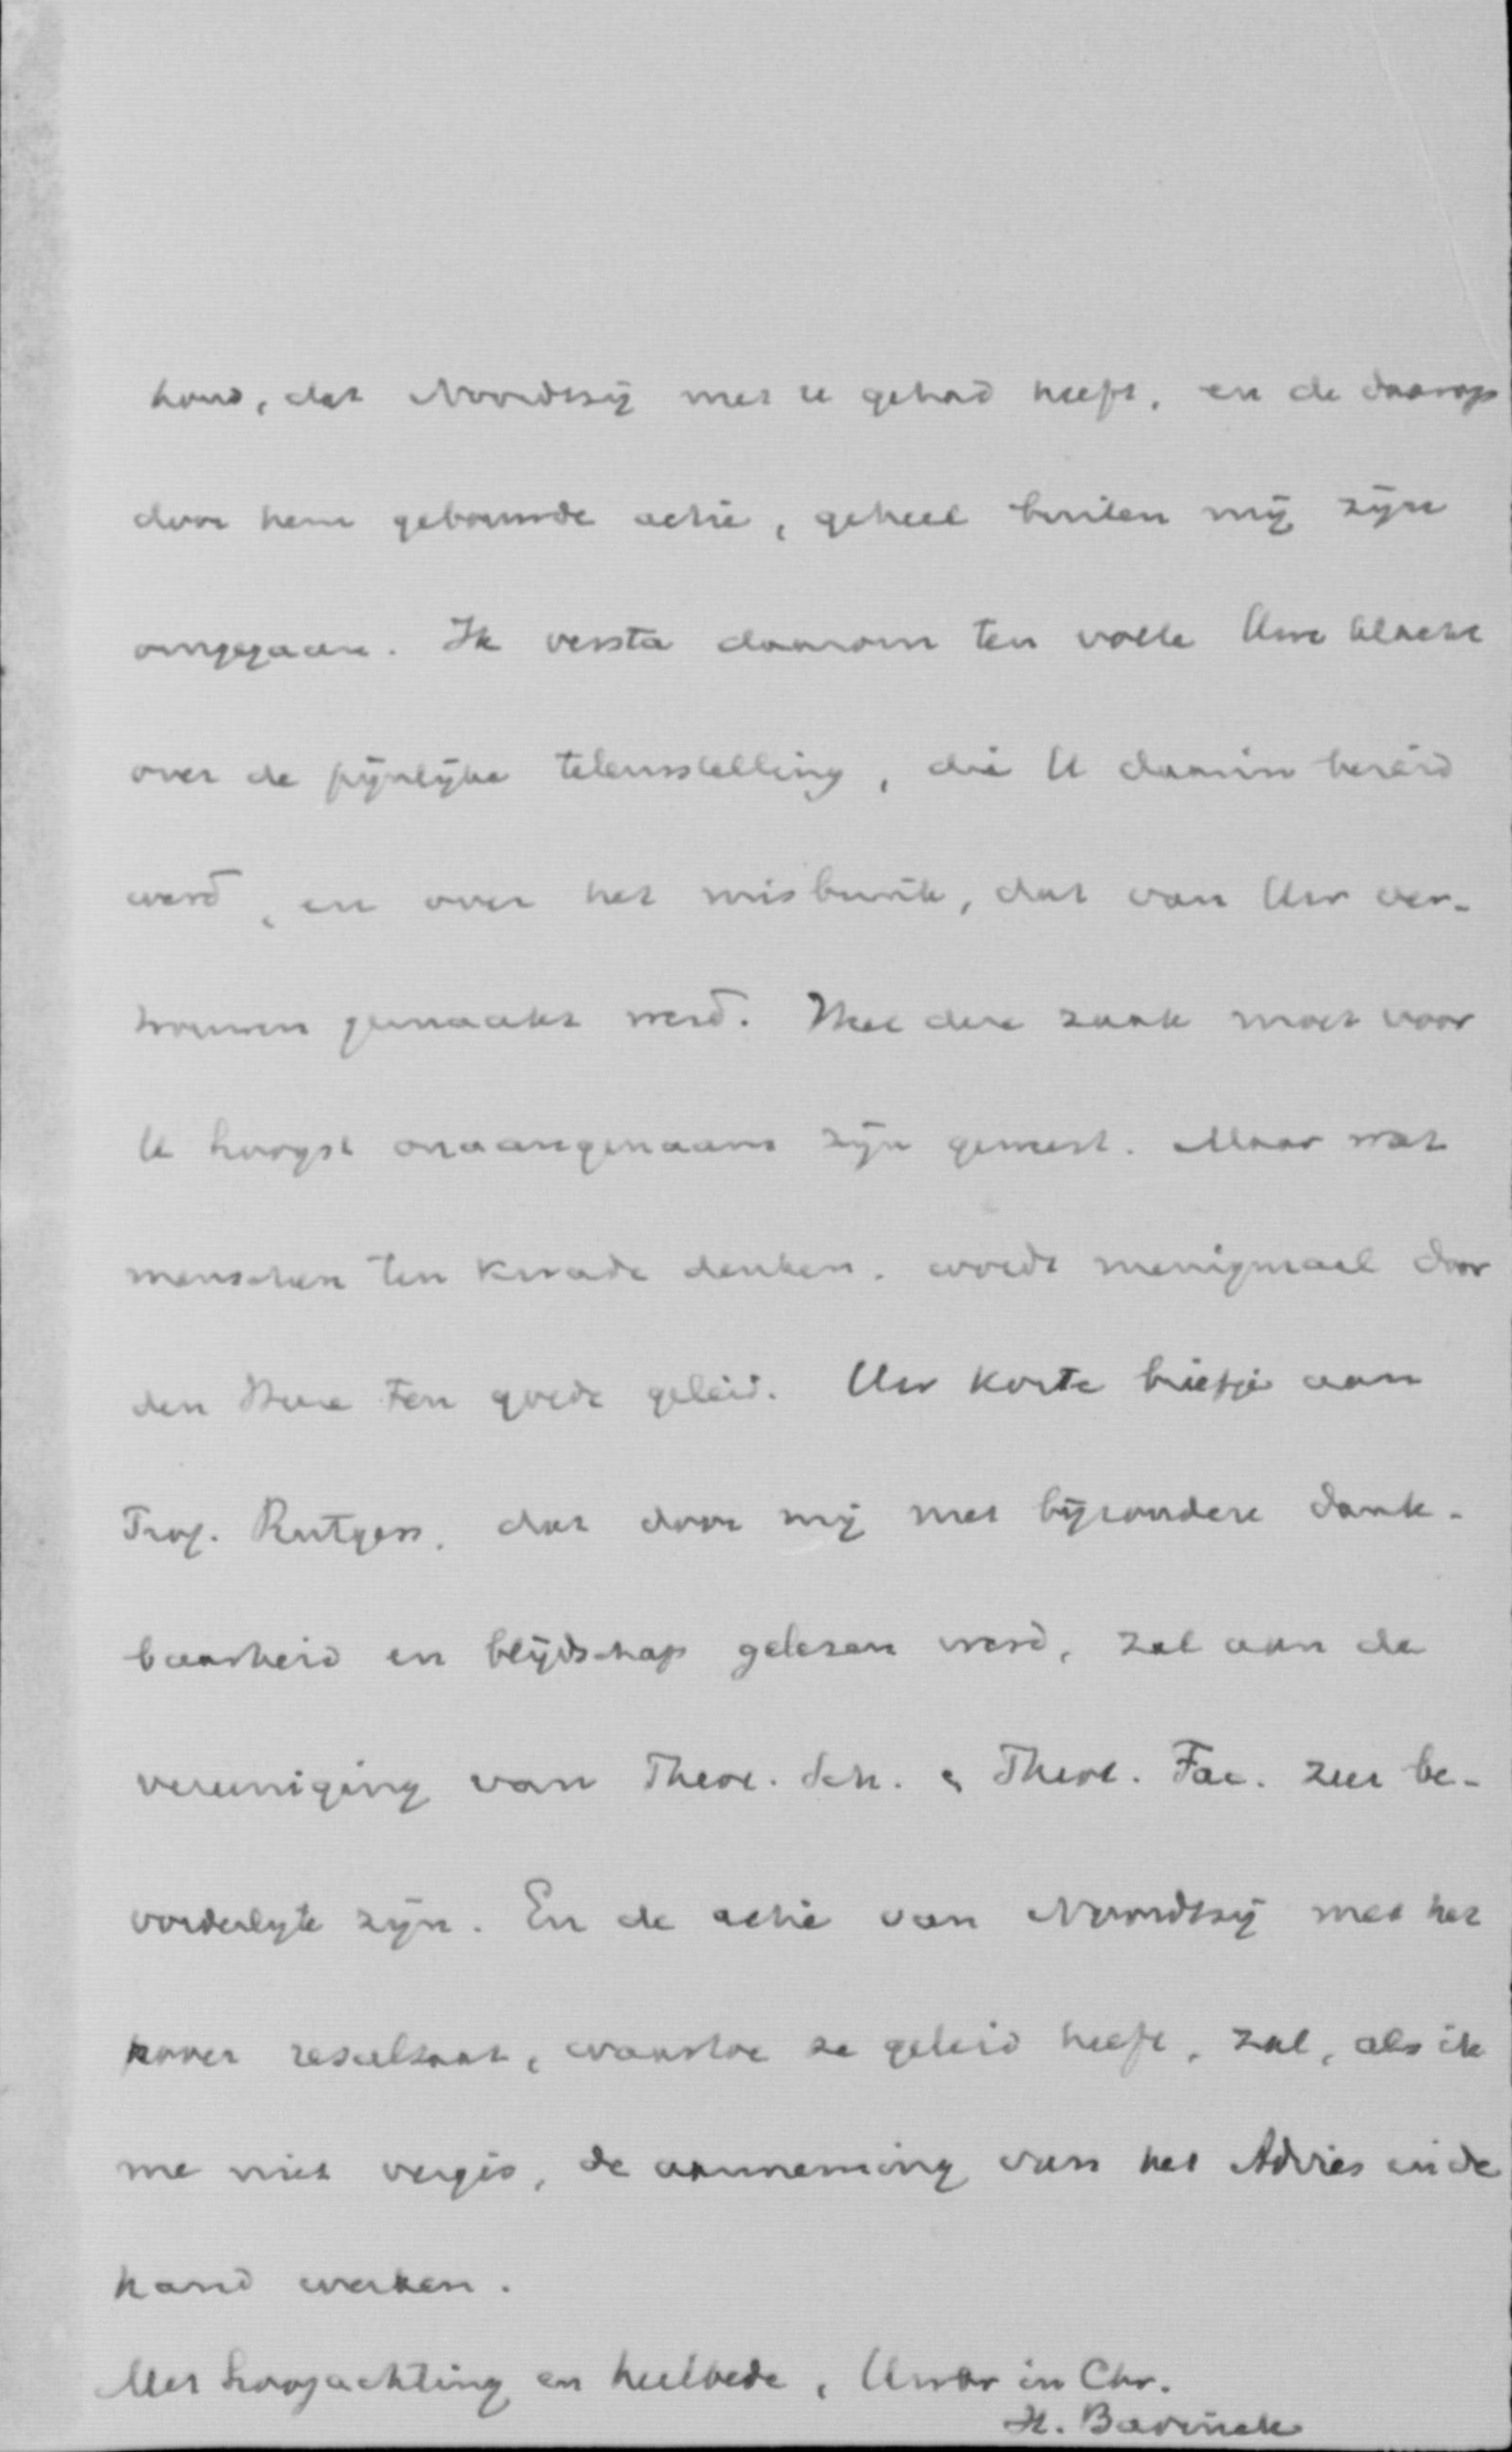 houd, dat Noordtzij met u gehad heeft, en de daarop
door hem gebouwde actie, geheel buiten mij zijn
omgegaan. Ik versta daarom ten volle Uwe klacht
over de pijnlijke teleurstelling, die U daarin bereid
werd, en over het misbruik, dat van Uw ver-
trouwen gemaakt werd. Heel deze zaak moet voor
U hoogst onaangenaam zijn geweest. Maar wat
menschen ten kwade denken, wordt menigmaal door
den Heere ten goede geleid. Uw korte briefje aan
Prof. Rutgers, dat door mij met bijzondere dank-
baarheid en blijdschap gelezen werd, zal aan de
vereeniging van Theol. Sch. & Theol. Fac. zeer be-
vorderlijk zijn. En de actie van Noordtzij met het
pover resultaat, waartoe ze geleid heeft, zal, als ik
me niet vergis, de aanneming van het Advies in de
hand werken.
Met hoogachting en heilbede, Uw br in Chr.
H. Bavinck